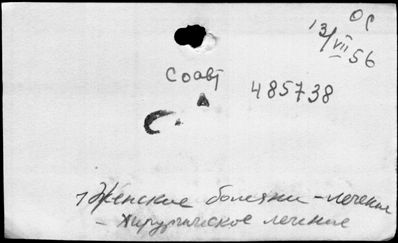 ОС
13/VII 56
соавт
485738
Женские болезни - лечение
- хирургическое лечение